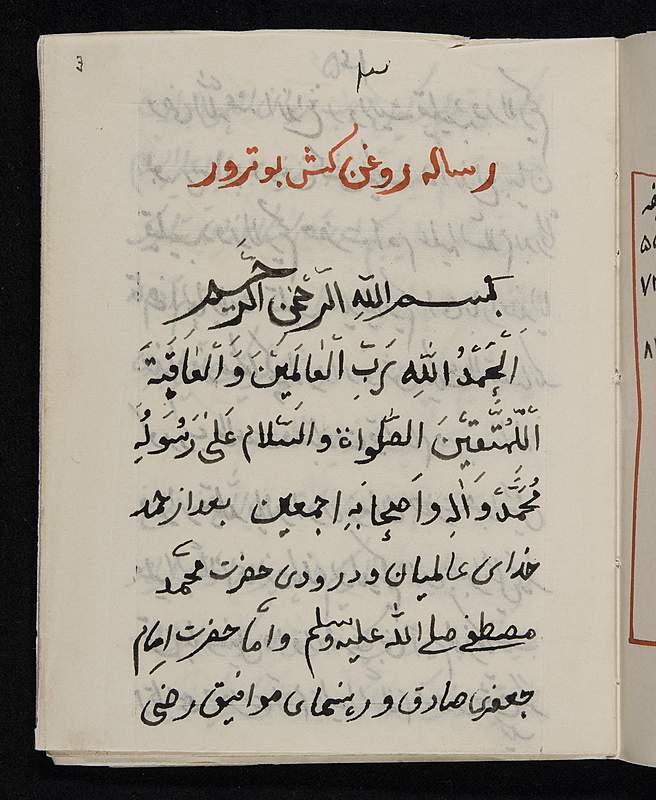 ۳
رساله روغن کش بوترور
بسم اللهِ الرَّحْمٰنِ الرَّحِيم
اَلْحَمْدُ اللهِ رَبِّ الْعٰالَمِيْنَ وَ الْعٰاقِبَةَ
اَللّمُتَّقِيْنَ الصَّلواة والسَّلام عَلىٰ رَسُولِهِ
مُحَمَّدْ وَ اٰلِهِ و اَصحٰابِهِ اجمعين بعد از حمد
خداى عالميان و درودى حضرت محمّد
مصطفى صلے الله عليه وسلم و امّا حضرت اِمام
جعفرى صادق و رهنماى موافيق رضى